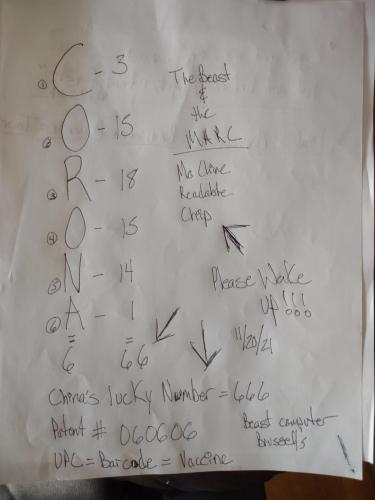 ① C - 3
② O - 15
③ R - 18
④ O - 15
⑤ N - 14
⑥ A - 1
= =
6 66
The Beast
&
the
MARC
Machine
Readable
Chip
Please Wake
up!!!
11/20/21
China's lucky Number = 666
Patent # 060606
UPC = Barcode = Vaccine
Beast computer
Brussells